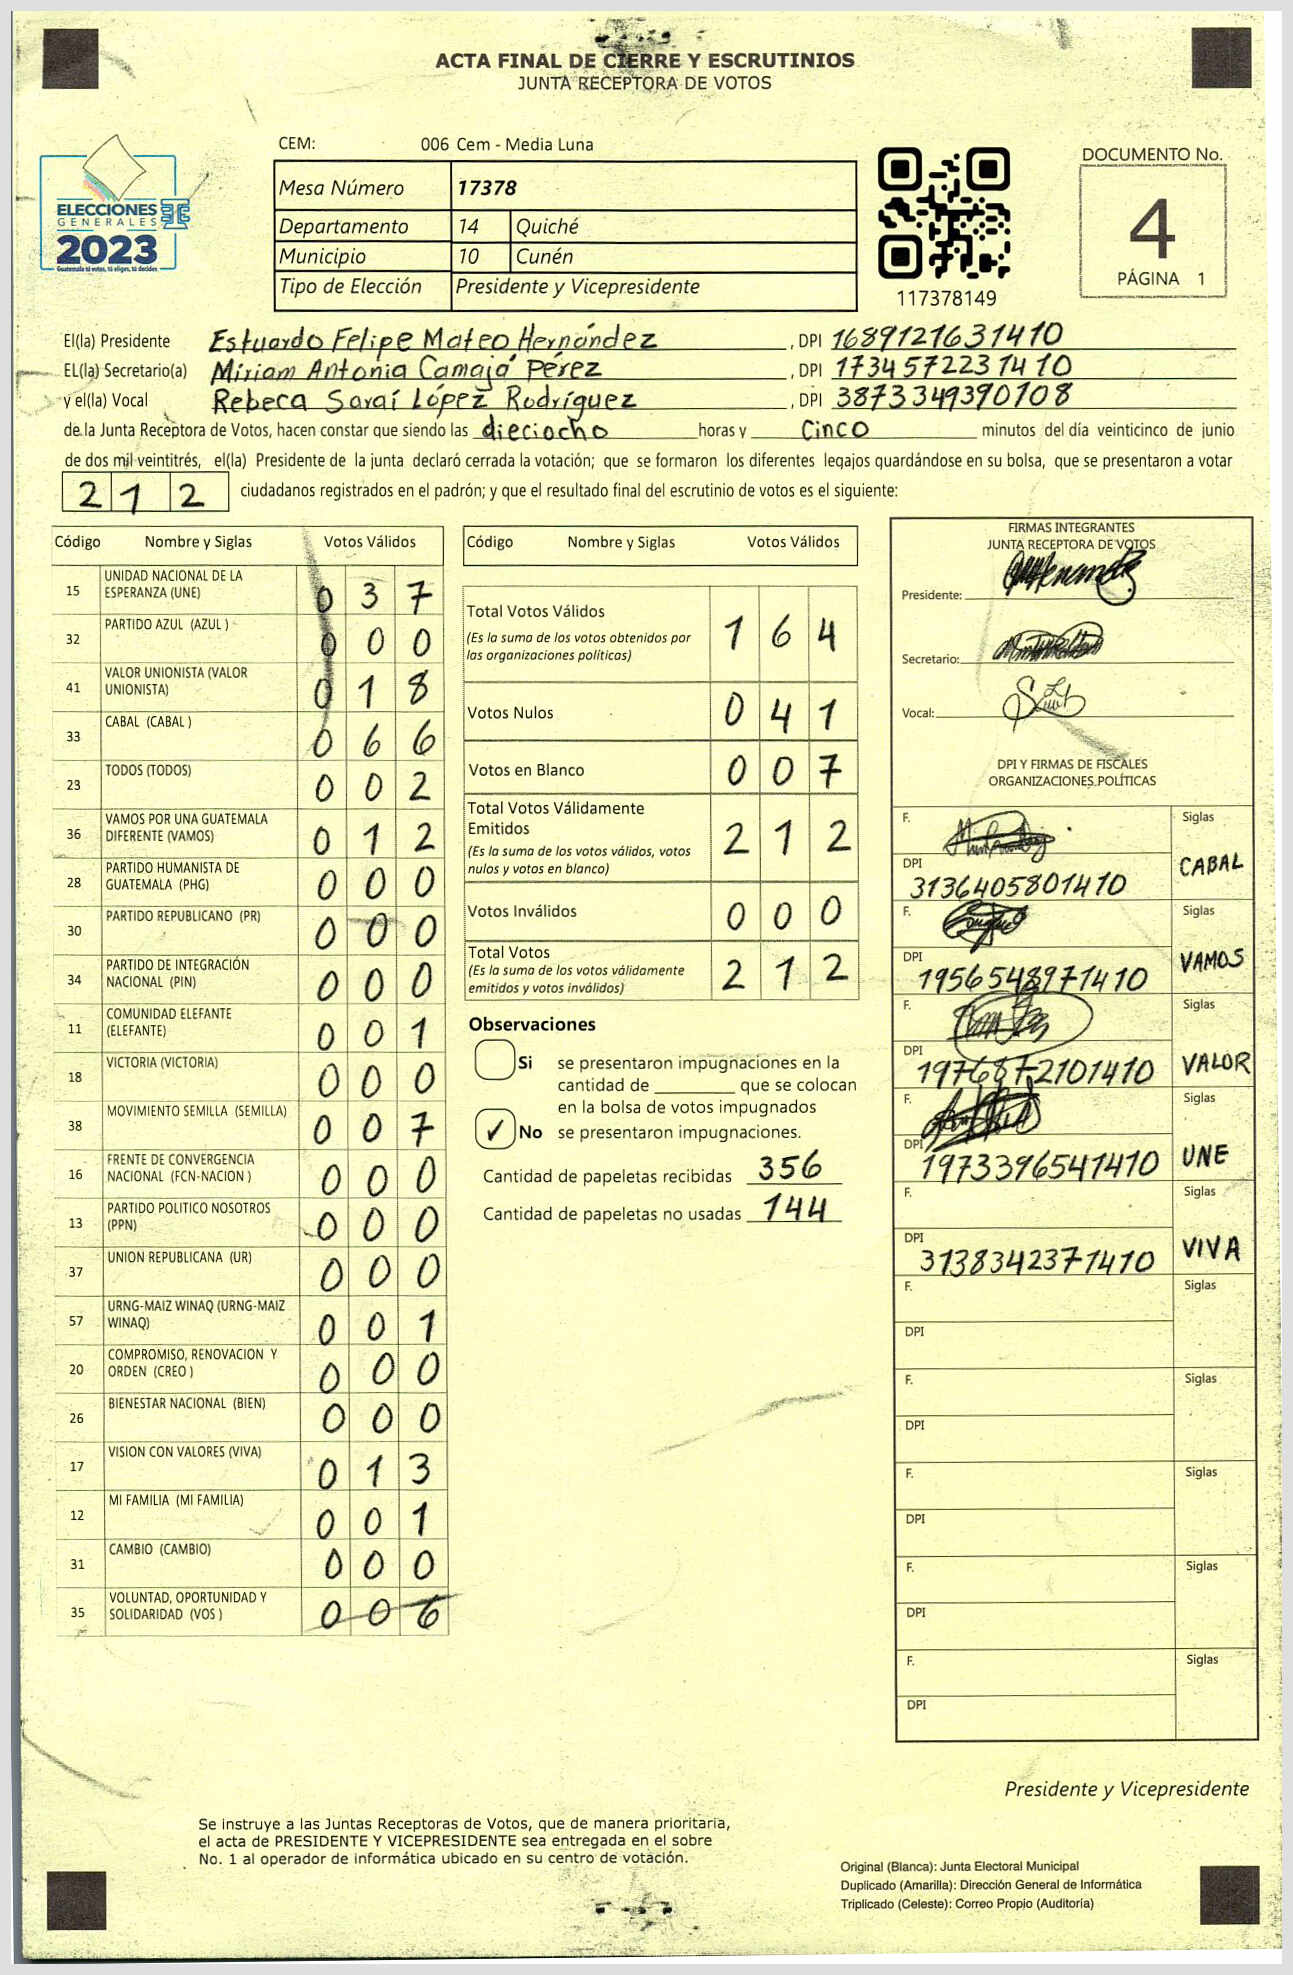 ACTA FINAL DE CIERRE Y ESCRUTINIOS
JUNTA RECEPTORA DE VOTOS
ELECCIONES
GENERALES
2023
Guatemala tú votas, tú eliges, tú decides
CEM: 006 Cem - Media Luna
Mesa Número 17378
Departamento 14 Quiché
Municipio 10 Cunén
Tipo de Elección Presidente y Vicepresidente
117378149
DOCUMENTO No.
4
PÁGINA 1
El(la) Presidente Estuardo Felipe Mateo Hernández, DPI 1689121631410
EL(la) Secretario(a) Miriam Antonia Camajá Pérez, DPI 1734572231410
y el(la) Vocal Rebeca Saraí López Rodríguez, DPI 3873349390108
de la Junta Receptora de Votos, hacen constar que siendo las dieciocho horas y cinco minutos del día veinticinco de junio
de dos mil veintitrés, el(la) Presidente de la junta declaró cerrada la votación; que se formaron los diferentes legajos guardándose en su bolsa, que se presentaron a votar
212 ciudadanos registrados en el padrón; y que el resultado final del escrutinio de votos es el siguiente:
Código Nombre y Siglas Votos Válidos
15 UNIDAD NACIONAL DE LA ESPERANZA (UNE) 037
32 PARTIDO AZUL (AZUL ) 000
41 VALOR UNIONISTA (VALOR UNIONISTA) 018
33 CABAL (CABAL ) 066
23 TODOS (TODOS) 002
36 VAMOS POR UNA GUATEMALA DIFERENTE (VAMOS) 012
28 PARTIDO HUMANISTA DE GUATEMALA (PHG) 000
30 PARTIDO REPUBLICANO (PR) 000
34 PARTIDO DE INTEGRACIÓN NACIONAL (PIN) 000
11 COMUNIDAD ELEFANTE (ELEFANTE) 001
18 VICTORIA (VICTORIA) 000
38 MOVIMIENTO SEMILLA (SEMILLA) 007
16 FRENTE DE CONVERGENCIA NACIONAL (FCN-NACION ) 000
13 PARTIDO POLITICO NOSOTROS (PPN) 000
37 UNION REPUBLICANA (UR) 000
57 URNG-MAIZ WINAQ (URNG-MAIZ WINAQ) 001
20 COMPROMISO, RENOVACION Y ORDEN (CREO ) 000
26 BIENESTAR NACIONAL (BIEN) 000
17 VISION CON VALORES (VIVA) 013
12 MI FAMILIA (MI FAMILIA) 001
31 CAMBIO (CAMBIO) 000
35 VOLUNTAD, OPORTUNIDAD Y SOLIDARIDAD (VOS ) 006
Código Nombre y Siglas Votos Válidos
Total Votos Válidos 164
(Es la suma de los votos obtenidos por
las organizaciones políticas)
Votos Nulos 041
Votos en Blanco 007
Total Votos Válidamente
Emitidos 212
(Es la suma de los votos válidos, votos
nulos y votos en blanco)
Votos Inválidos 000
Total Votos 212
(Es la suma de los votos válidamente
emitidos y votos inválidos)
Observaciones
Si se presentaron impugnaciones en la
cantidad de ________ que se colocan
en la bolsa de votos impugnados
✓ No se presentaron impugnaciones.
Cantidad de papeletas recibidas 356
Cantidad de papeletas no usadas 144
FIRMAS INTEGRANTES
JUNTA RECEPTORA DE VOTOS
Presidente:
Secretario:
Vocal:
DPI Y FIRMAS DE FISCALES
ORGANIZACIONES POLÍTICAS
F. Siglas
DPI 3136405801410 CABAL
F. Siglas
DPI 1956548971410 VAMOS
F. Siglas
DPI 1976872101410 VALOR
F. Siglas
DPI 1973396541410 UNE
F. Siglas
DPI 3138342371410 VIVA
F. Siglas
DPI
F. Siglas
DPI
F. Siglas
DPI
F. Siglas
DPI
F. Siglas
DPI
Presidente y Vicepresidente
Se instruye a las Juntas Receptoras de Votos, que de manera prioritaria,
el acta de PRESIDENTE Y VICEPRESIDENTE sea entregada en el sobre
No. 1 al operador de informática ubicado en su centro de votación.
Original (Blanca): Junta Electoral Municipal
Duplicado (Amarilla): Dirección General de Informática
Triplicado (Celeste): Correo Propio (Auditoría)